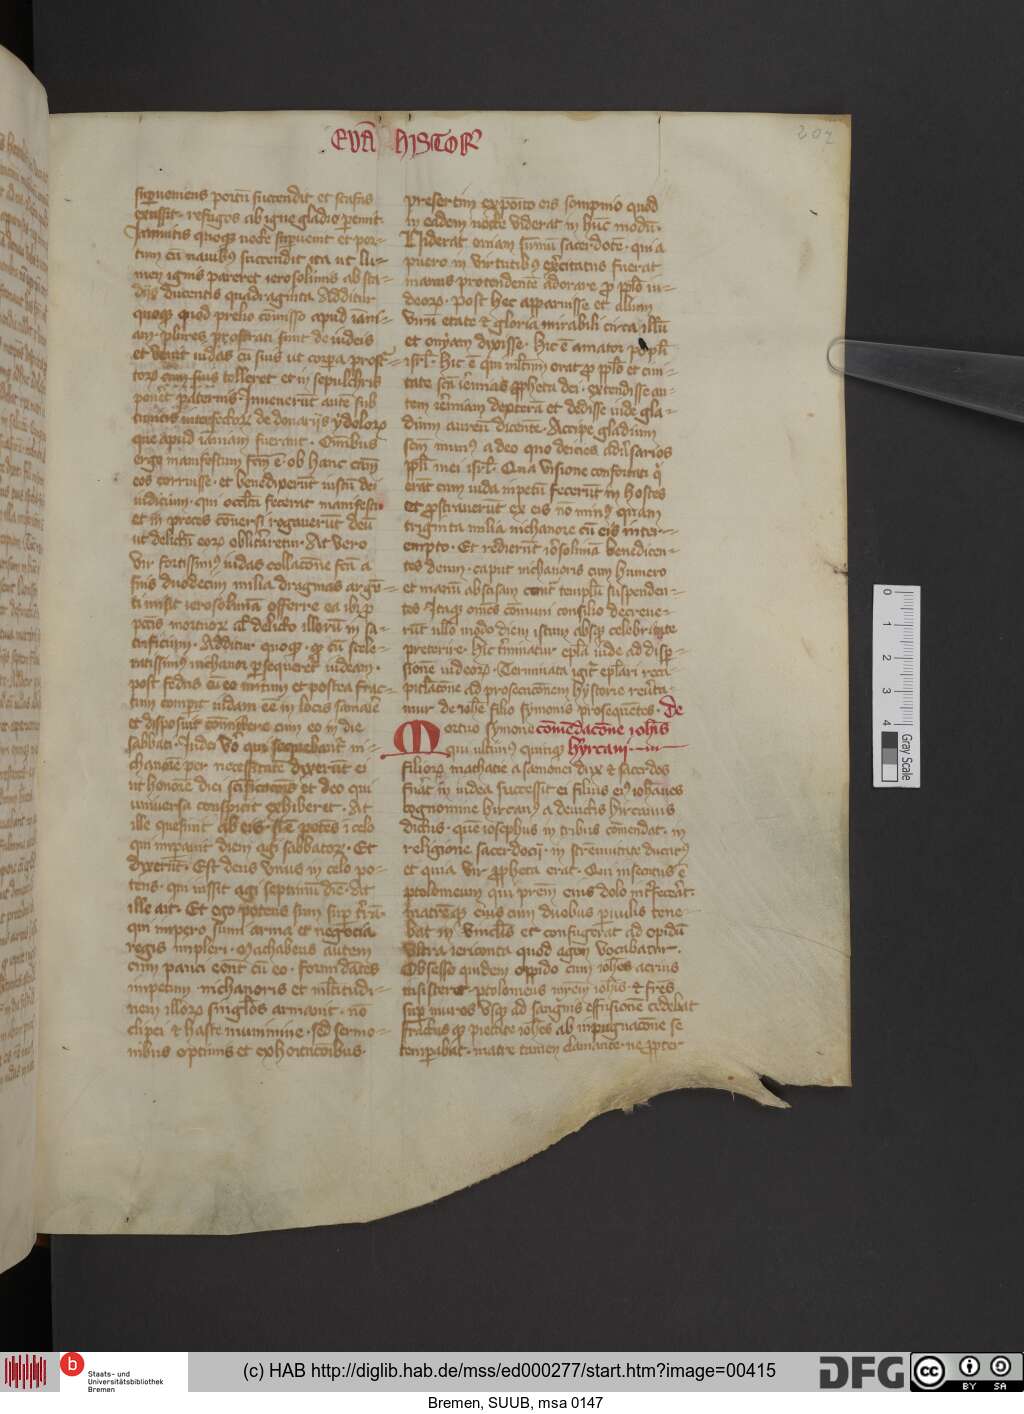 EVā HISTOR
202
supueniens portū succendit et scafas
exussit · refugos ab igne gladio pemit ·
Iamnitis quoqꝫ nocte supuenit et por-
tum cū nauibꝰ succendit ita ut lu-
men ignis pareret ierosolimis ab sta-
dijs ducentis quadraginta Additur
quoqꝫ quod prelio cōmisso apud iani-
am · plures prostrati sunt de iudeis
et venit iudas cū suis ut corpa prost-
torꝫ cum suis tolleret et in sepulchris
poneret paternis · Inuenerūt autē sub
tunicis interfectorꝫ de donarijs ydolorꝫ
que apud iamniam fuerant · Omibus
ergo manifestum fcm̄ ē · ob hanc cām
eos corruisse · et benedixerūt iustū dei
iudicium · qui occltū fecerat manifestū
et in preces cōuersi rogauerūt deū
ut delictū eorꝫ obliuiretur · At vero
vir fortissimꝰ iudas collacōne fcā a
suis duodecim milia dragmas argē-
ti misit ierosolimā offerre ea ibi p
pctis mortuorꝫ
tarificium · Additur quoqꝫ · qꝫ cū scele-
ratissimꝰ nichanor psequeret iudeam ·
post fedus cū eo initum et postea frac-
tum comperit iudam eē in locis samarie
et disposuit cōmittere cum eo in die
sabbati · Iudei vo qui sequebantr ni-
chanorē per necessitatē dixerūt ei
ut honorē diei scificacōis et deo qui
uniuersa conspicit exhiberet · At
ille quesiuit ab eis · si ē potēs ī celo
qui impauit diem agi sabbatorꝫ · Et
dixerūt · Est deus viuus in celo po-
tens · qui iussit agi septimū diē · At
ille ait · Et ego potens sum sup trā ·
qui impero sumi arma et negocia
regis impleri · Machabeus autem
cum pauci eōnt cū eo · formidātes
impetum nichanoris et mltitudi-
nem illorꝫ singlos armauit · nō
clipei et haste munimine · sed sermo-
nibus optimis et exhortacōibus ·
presertim exposito eis sompnio quod
in eadem nocte viderat in hūc modū ·
Uiderat oniam sūmū sacerdotē · qui a
puero in virtutibꝰ exercitatus fuerat
manus protendentē adorare p pplo iu-
deorꝫ · Post hec apparuisse et alium
virū etate et gloria mirabili circa illū
et onyam dixisse · hic ē amator popli
isrl · Hic ē qui mltum orat p pplo et ciui-
tate scā ieremias ppheta dei · extendisse au-
tem ieremiam dexterā et dedisse iude gla-
dium aureū dicentē · Accipe gladium
scm munꝰ a deo quo deicies aduersarios
ppli mei isrl · Qua visione confortati qi
erāt cum iuda inpetū fecerūt in hostes
et prostrauerūt ex eis nō minꝰ quam
triginta milia nichanore cū eis inter-
empto · Et redierūt ierosolimā benedicen-
tes deum · caput nichanoris cum humero
et manu abscisam contr templū suspenden-
tes Itaqꝫ oīnes cōmuni consilio decreue-
rūt nllo modo diem istum absqꝫ celebritate
preterire · hic terminatur epla iude ad disp-
sionē iudeorꝫ · Terminata igitr eplari reca-
pitlacōne ad prosecucōnem hystorie reuerta-
mur de iohē filio symonis prosequentes · De
Mortuo symone cōmēdacōne iohīs
qui ultimꝰ quinqꝫ hyrcani · III
filiorꝫ mathatie asamonei dux et sacerdos
fuerat in iudea successit ei filius eiꝰ iohānes
cognomine hircanꝰ a deuictis hircanis
dictus · quē iosephus in tribus cōmendat · in
religione sacerdocij · in strennuitate ducatꝰ
et quia vir ppheta erat · Qui insecutus ē
ptolomeum qui prem eius dolo interfecerat ·
matremqꝫ eius cum duobus pruulis tene-
bat in vinclis et confugerat ad opidū
ultra iericonta quod agon vocabatur ·
Obsesso quidem oppido cum iohēs acrius
insisteret · ptolomeus mrem iohīs et frēs
sup muros vsqꝫ ad sangnis effusionē cedebat
fractus qꝫ pietate iohēs ab inpugnacōne se
temperabat · matre tamen clamante · ne ppter
0
1
2
3
4
Gray Scale
b
Staats- und
Universitätsbibliothek
Bremen
(c) HAB http://diglib.hab.de/mss/ed000277/start.htm?image=00415
DFG
cc BY SA
Bremen, SUUB, msa 0147